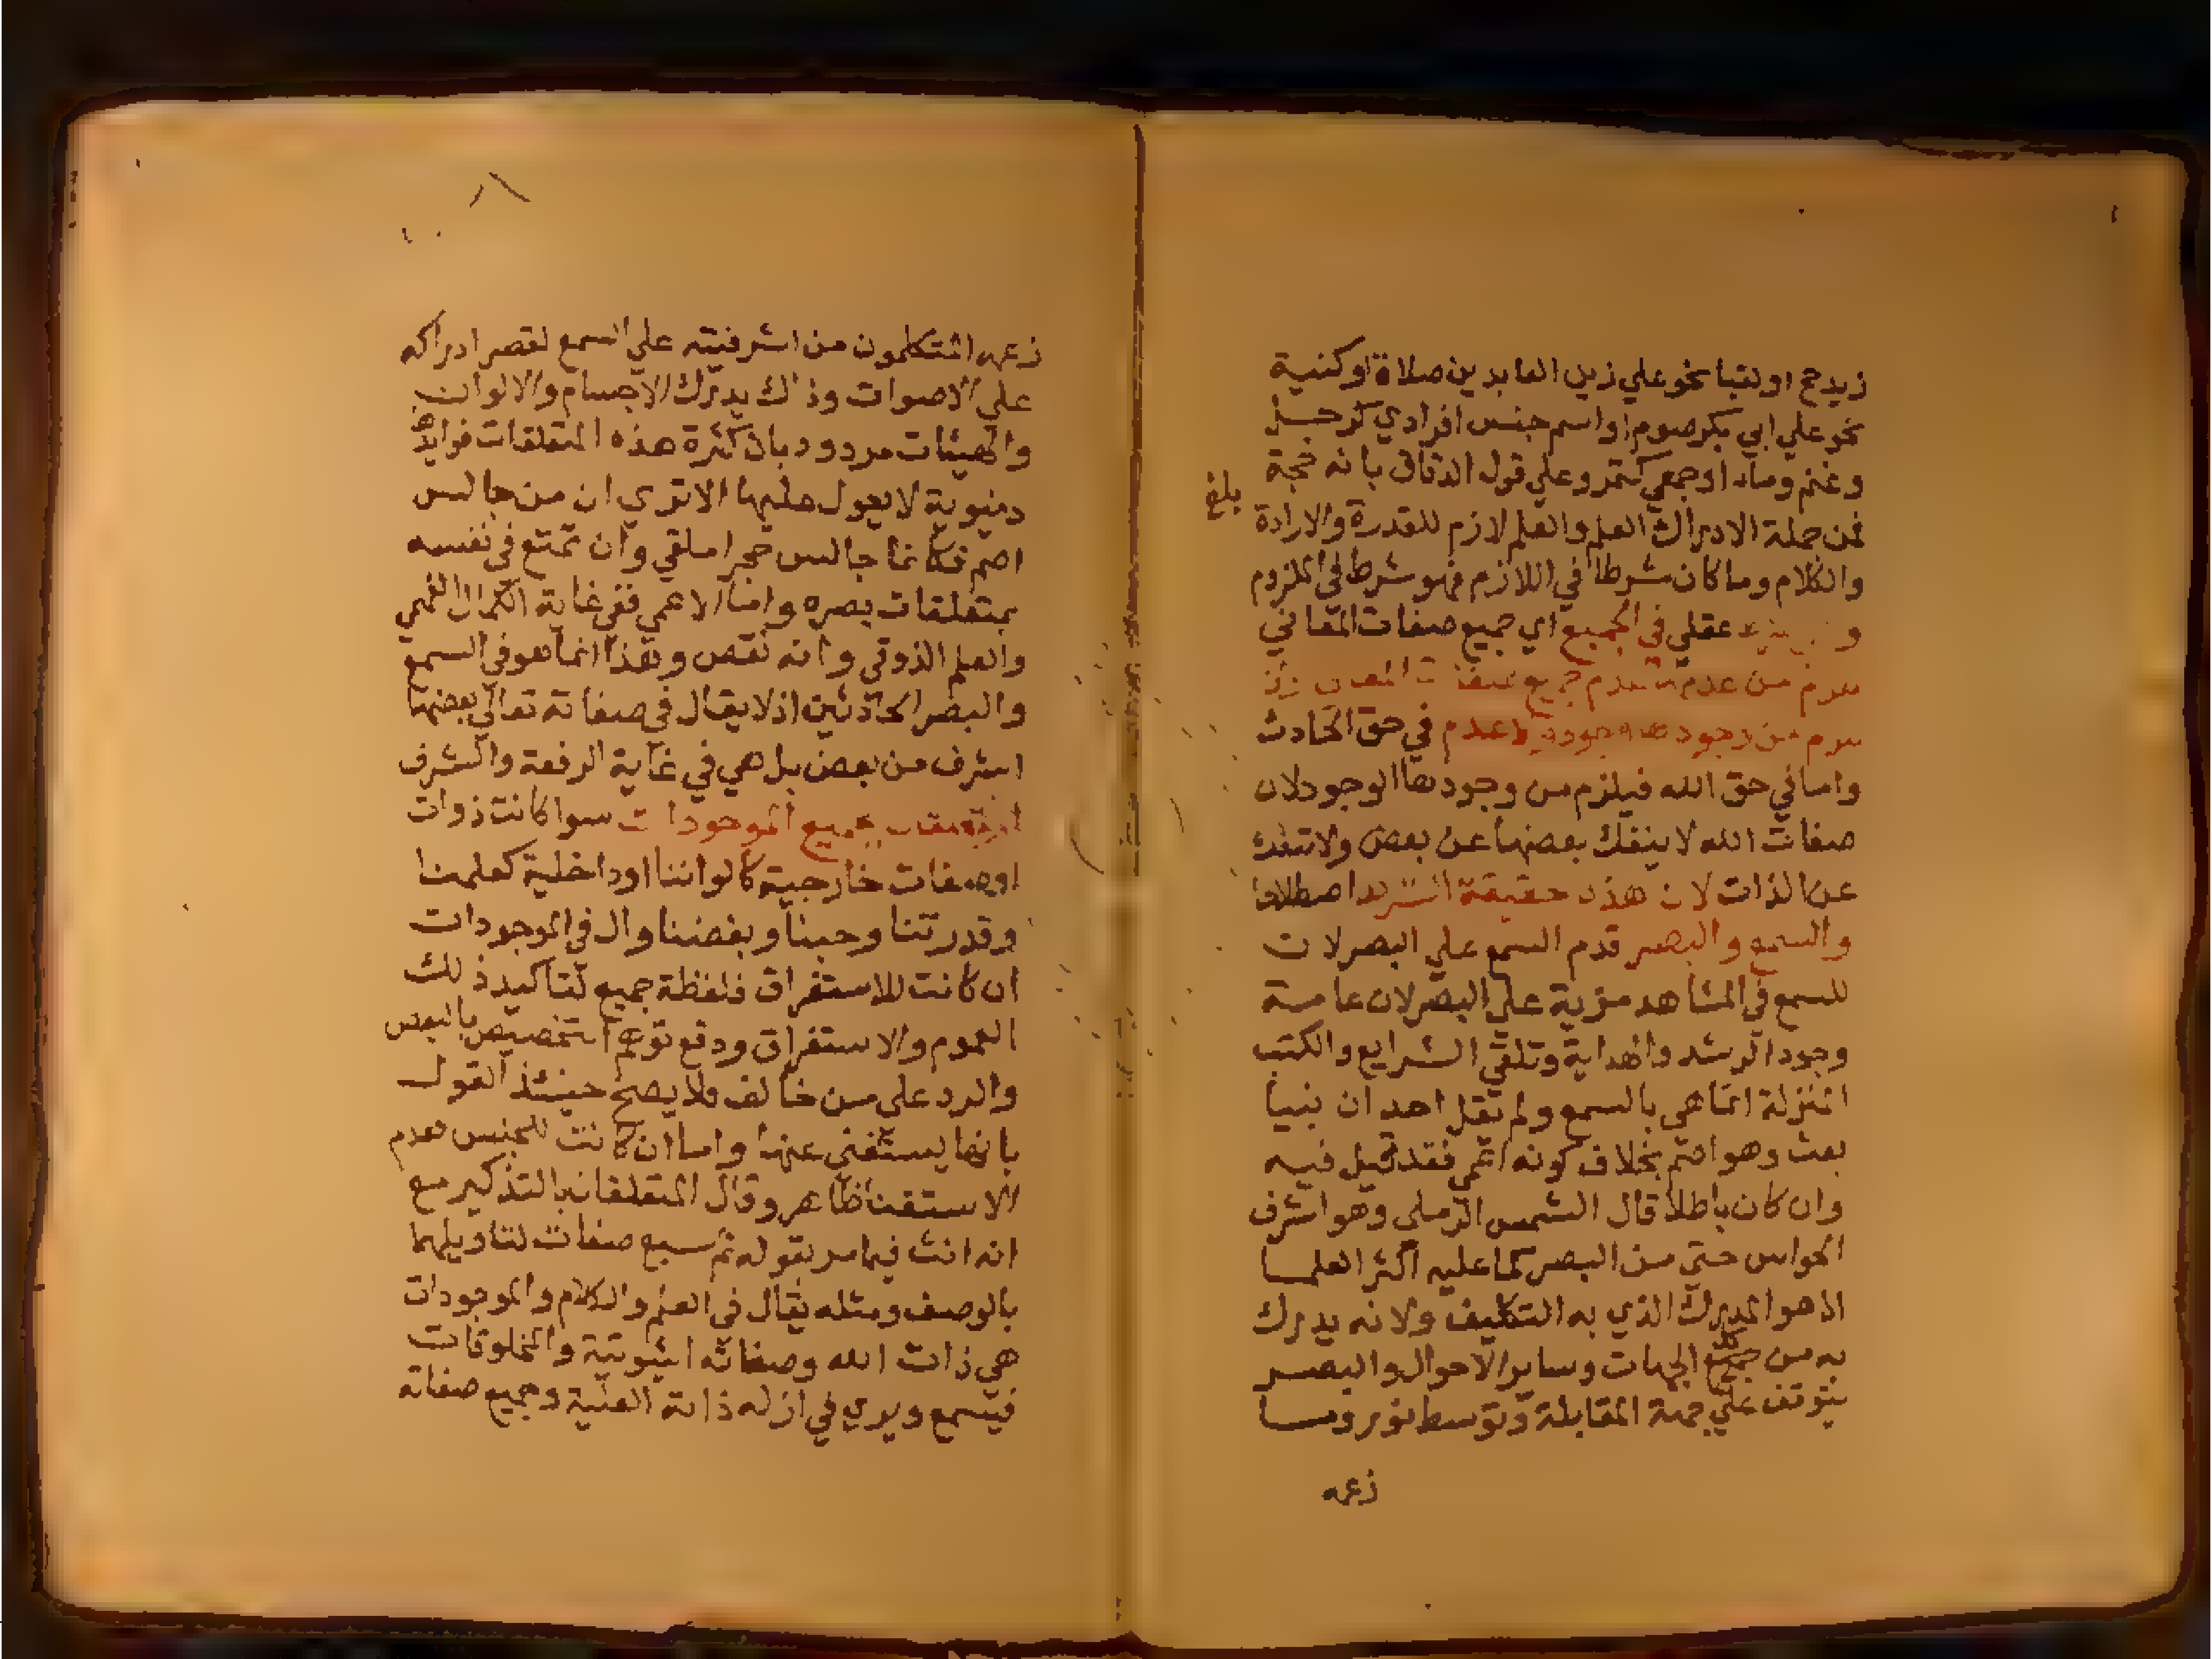 زيد حج او لقبا نحو علي زين العابدين صلاة او كنية
نحو علي ابي بكر صوم او اسم جنس افرادي كرجل
وغنم وماء او جمعي كتمر وعلي قول الدقاق بانه حجة
بلغ
فمن جملة الادراك العلم والعلم لازم للقدرة والارادة
والكلام وما كان شرطا في اللازم فهو شرط في الملزوم
عقلي في الجميع اي جميع صفات المعاني
من عدمها عدم جميع صفات المعاني
من وجودها وجود ولا عدم في حق الحادث
واما في حق الله فيلزم من وجودها الوجود لان
صفات الله لا ينفك بعضها عن بعض ولا تنفك
عن الذات لان هذه حقيقة الشرط اصطلاحا
والسمع والبصر قدم السمع علي البصر لان
للسمع في المشاهد مزية علي البصر لان عامة
وجود الرشد والهداية وتلقي الشرايع والكتب
المنزلة انما هي بالسمع ولم نقل احد ان نبيا
بعث وهو اصم بخلاف كونه اعمي فقد قيل فيه
وان كان باطلا قال الشمس الرملي وهو اشرف
الحواس حتي من البصر كما عليه اكثر العلما
اذ هو المدرك الذي به التكليف ولانه يدرك
به من جميع الجهات وساير الاحوال والبصر
يتوقف علي جهة المقابلة وتوسط نور وما
زعمه
زعمه المتكلمون من اشرفيته علي السمع لقصر ادراكه
علي الاصوات وذاك يدرك الاجسام والالوان
والهيئات مردود بان كثرة هذه المتعلقات فوايدها
دنيوية لا يعول عليها الا تري ان من جالس
اصم فكانما جالس حجرا ملقي وان تمتع في نفسه
بمتعلقات بصره واما الاعمي ففي غاية الكمال الفهمي
والعلم الذوقي وانه نقص وهذا انما هو في السمع
والبصر الحادثين اذ لا يقال في صفاته تعالي بعضها
اشرف من بعض بل هي في غاية الرفعة والشرف
بجميع الموجودات سوا كانت ذوات
او صفات خارجية كالواننا او داخلية كعلمنا
وقدرتنا وحبنا وبغضنا وال في الموجودات
ان كانت للاستغراق فلفظة جميع لتاكيد ذلك
العموم والاستغراق ودفع توهم التخصيص بالبعض
والرد علي من خالف فلا يصح حينئذ القول
بانها يستغني عنها واما ان كانت للجنس فعدم
الاستغنا ظاهر وقال المتعلقان بالتذكير مع
انه انث فيما مر بقوله ثم سبع صفات لتاويلهما
بالوصف ومثله يقال في العلم والكلام والموجودات
هي ذات الله وصفاته الثبوتية والمخلوقات
فيسمع ويري في ازله ذاته العلية وجميع صفاته